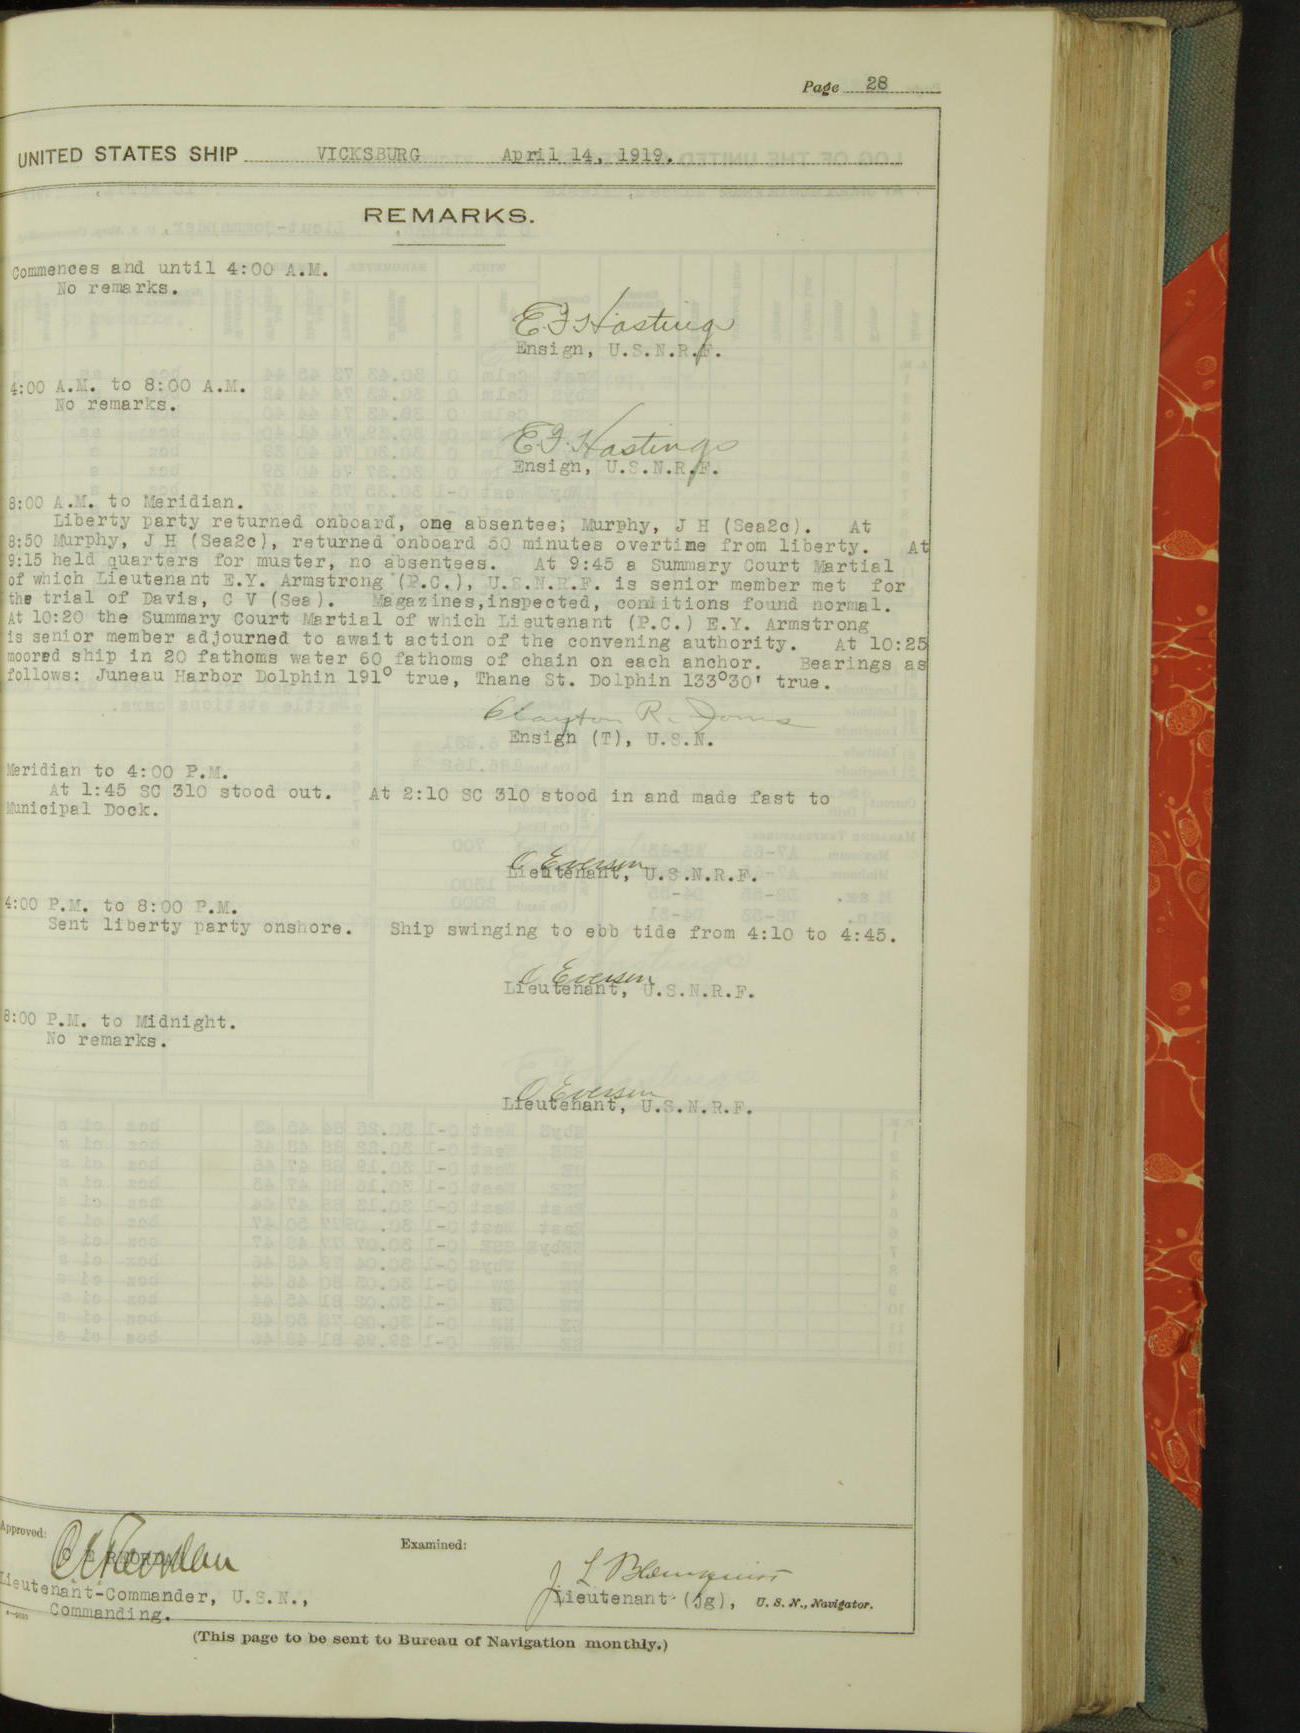 Page 28
UNITED STATES SHIP VICKSBURG April 14, 1919.
REMARKS.
Commences and until 4:00 A.M.
No remarks.
E.F. Hastings
Ensign, U.S.N.R.F.
4:00 A.M. to 8:00 A.M.
No remarks.
E.F. Hastings
Ensign, U.S.N.R.F.
8:00 A.M. to Meridian.
Liberty party returned onboard, one absentee; Murphy, J H (Sea2c). At
8:50 Murphy, J H (Sea2c), returned onboard 50 minutes overtime from liberty. At
9:15 held quarters for muster, no absentees. At 9:45 a Summary Court Martial
of which Lieutenant E.Y. Armstrong (P.C.), U.S.N.R.F. is senior member met for
the trial of Davis, C V (Sea). Magazines,inspected, conditions found normal.
At 10:20 the Summary Court Martial of which Lieutenant (P.C.) E.Y. Armstrong
is senior member adjourned to await action of the convening authority. At 10:25
moored ship in 20 fathoms water 60 fathoms of chain on each anchor. Bearings as
follows: Juneau Harbor Dolphin 191° true, Thane St. Dolphin 133°30' true.
Clayton R.
Ensign (T), U.S.N.
Meridian to 4:00 P.M.
At 1:45 SC 310 stood out. At 2:10 SC 310 stood in and made fast to
Municipal Dock.
O Eversen
Lieutenant, U.S.N.R.F.
4:00 P.M. to 8:00 P.M.
Sent liberty party onshore. Ship swinging to ebb tide from 4:10 to 4:45.
O Eversen
Lieutenant, U.S.N.R.F.
8:00 P.M. to Midnight.
No remarks.
O Eversen
Lieutenant, U.S.N.R.F.
Approved:
Examined:
Lieutenant-Commander, U.S.N.,
Commanding.
J L
Lieutenant (jg), U. S. N., Navigator.
(This page to be sent to Bureau of Navigation monthly.)